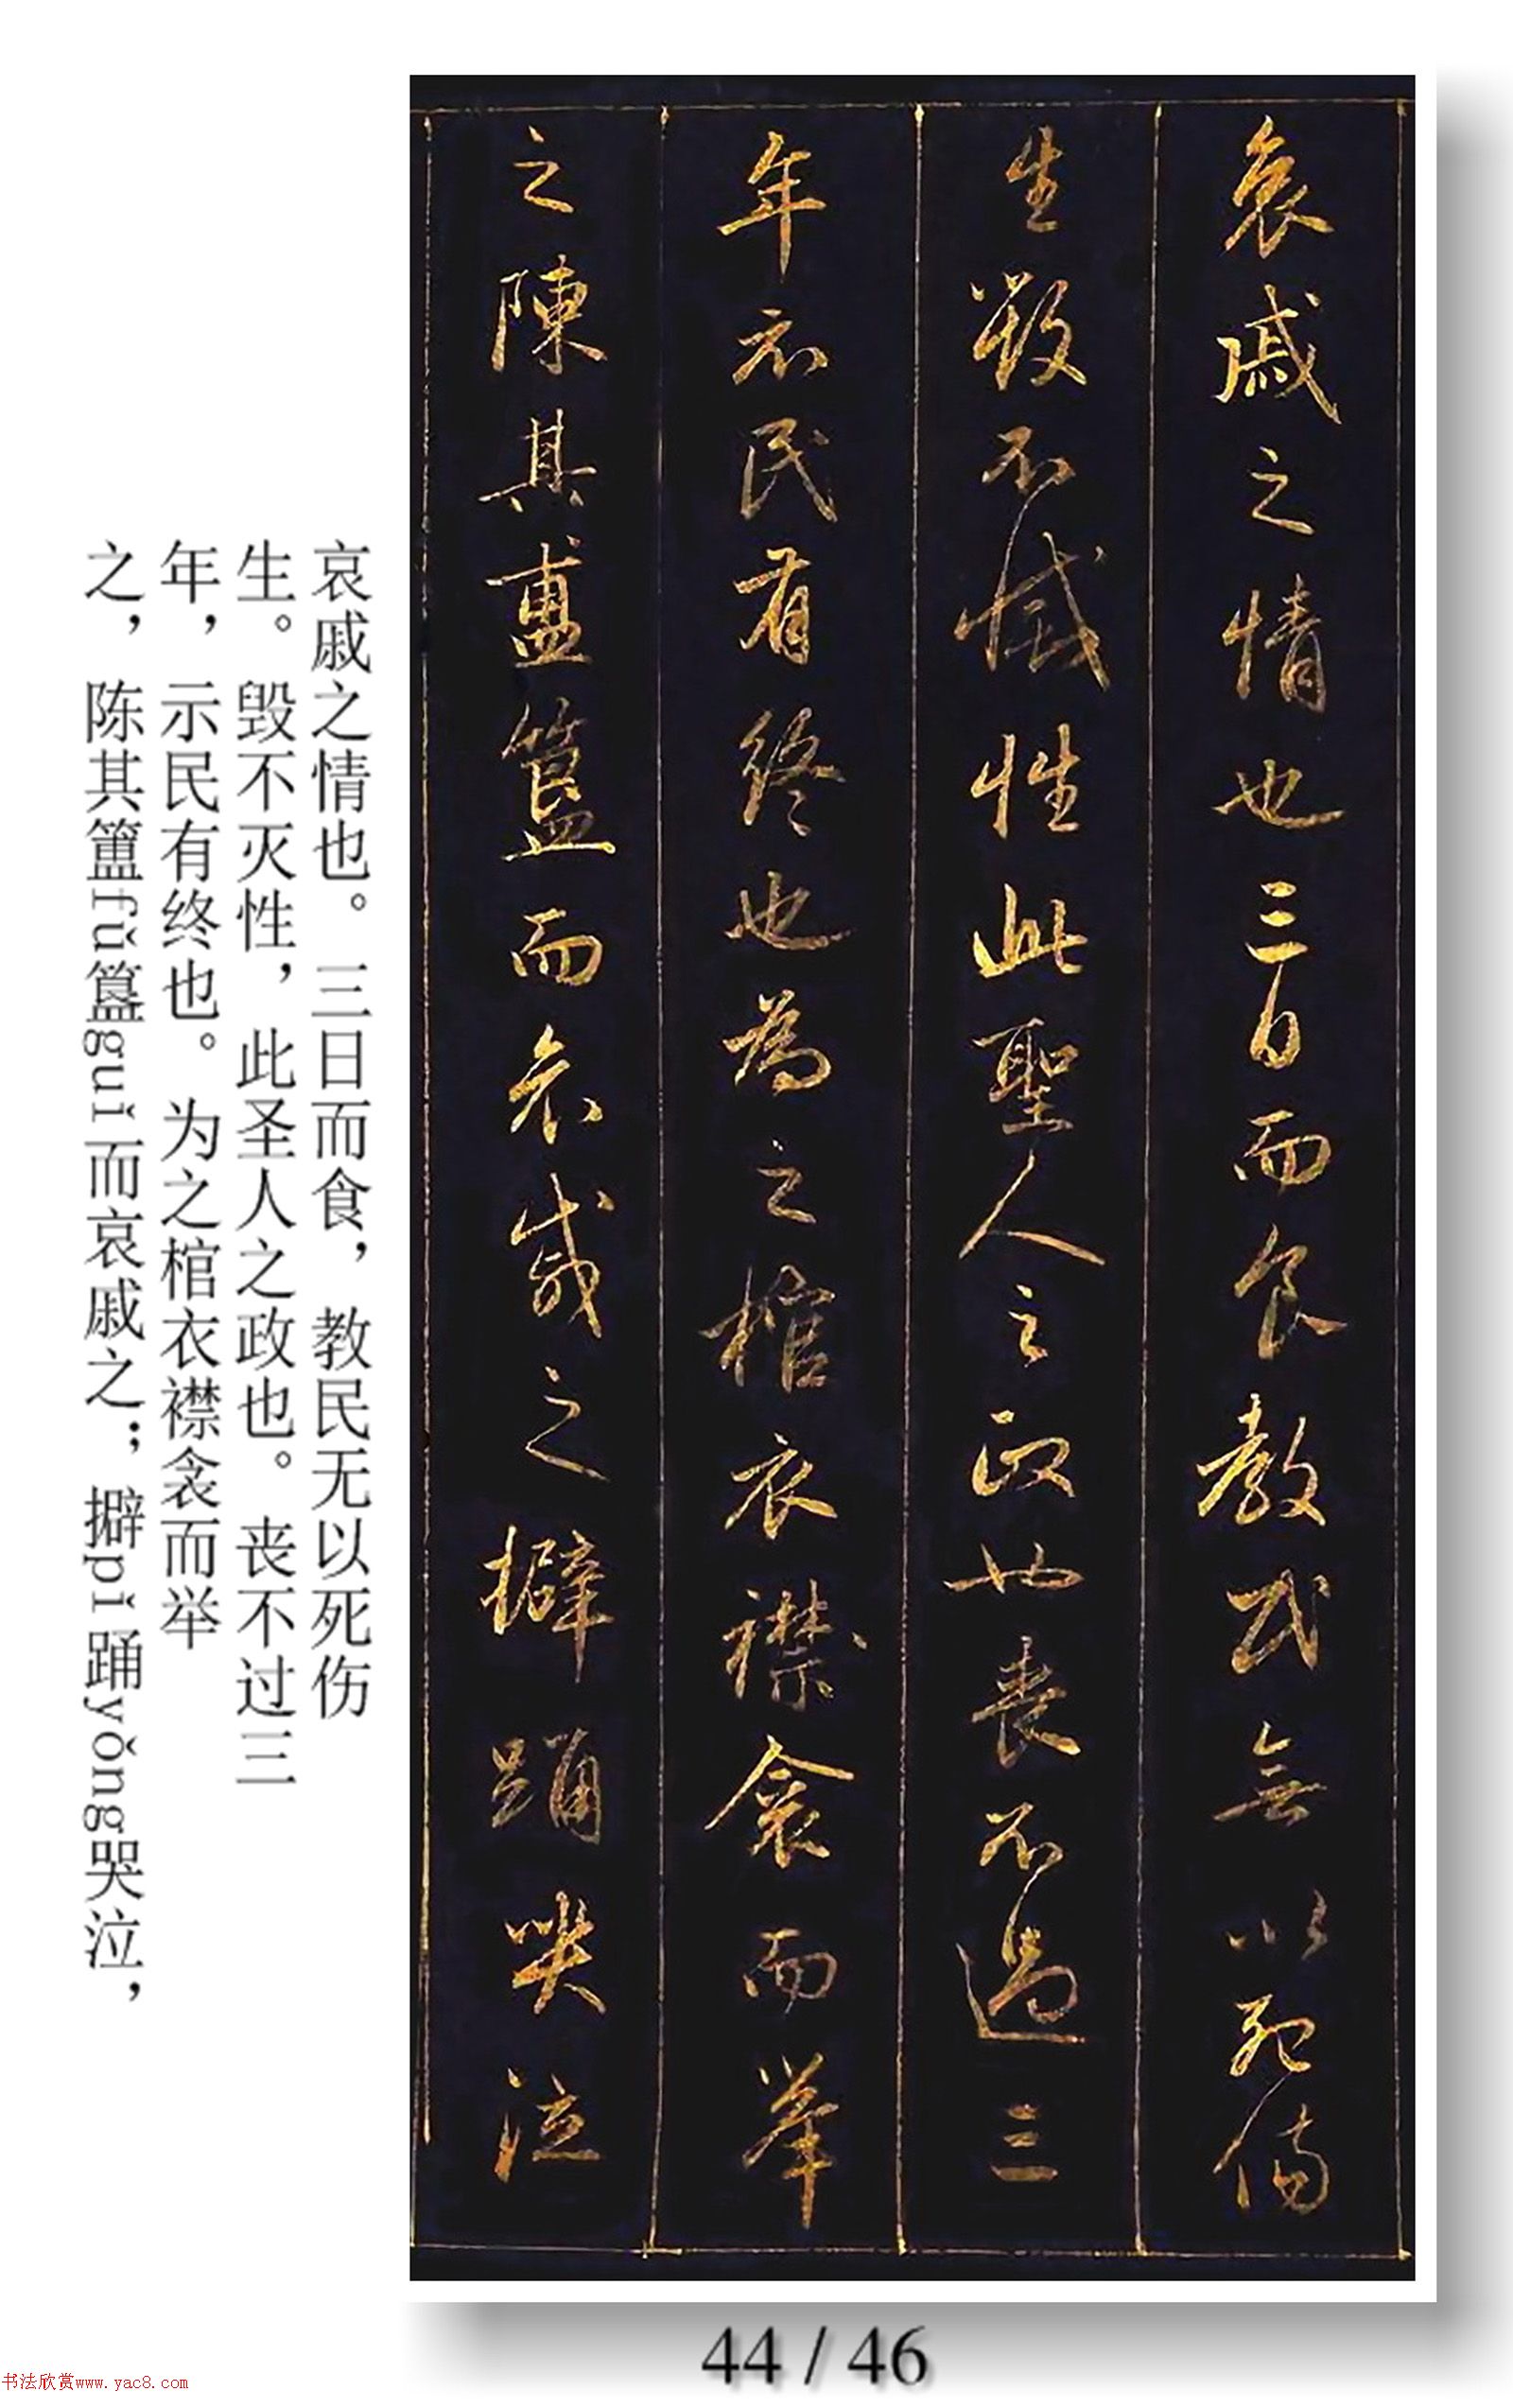 哀戚之情也三日而食教民無以死傷
生毀不滅性此聖人之政也喪不過三
年示民有終也為之棺衣襟衾而舉
之陳其簠簋而哀戚之擗踊哭泣
哀戚之情也。三日而食，教民无以死伤
生。毁不灭性，此圣人之政也。丧不过三
年，示民有终也。为之棺衣襟衾而举
之，陈其簠fǔ簋guǐ而哀戚之；擗pǐ踊yǒng哭泣，
44 / 46
书法欣赏www.yac8.com